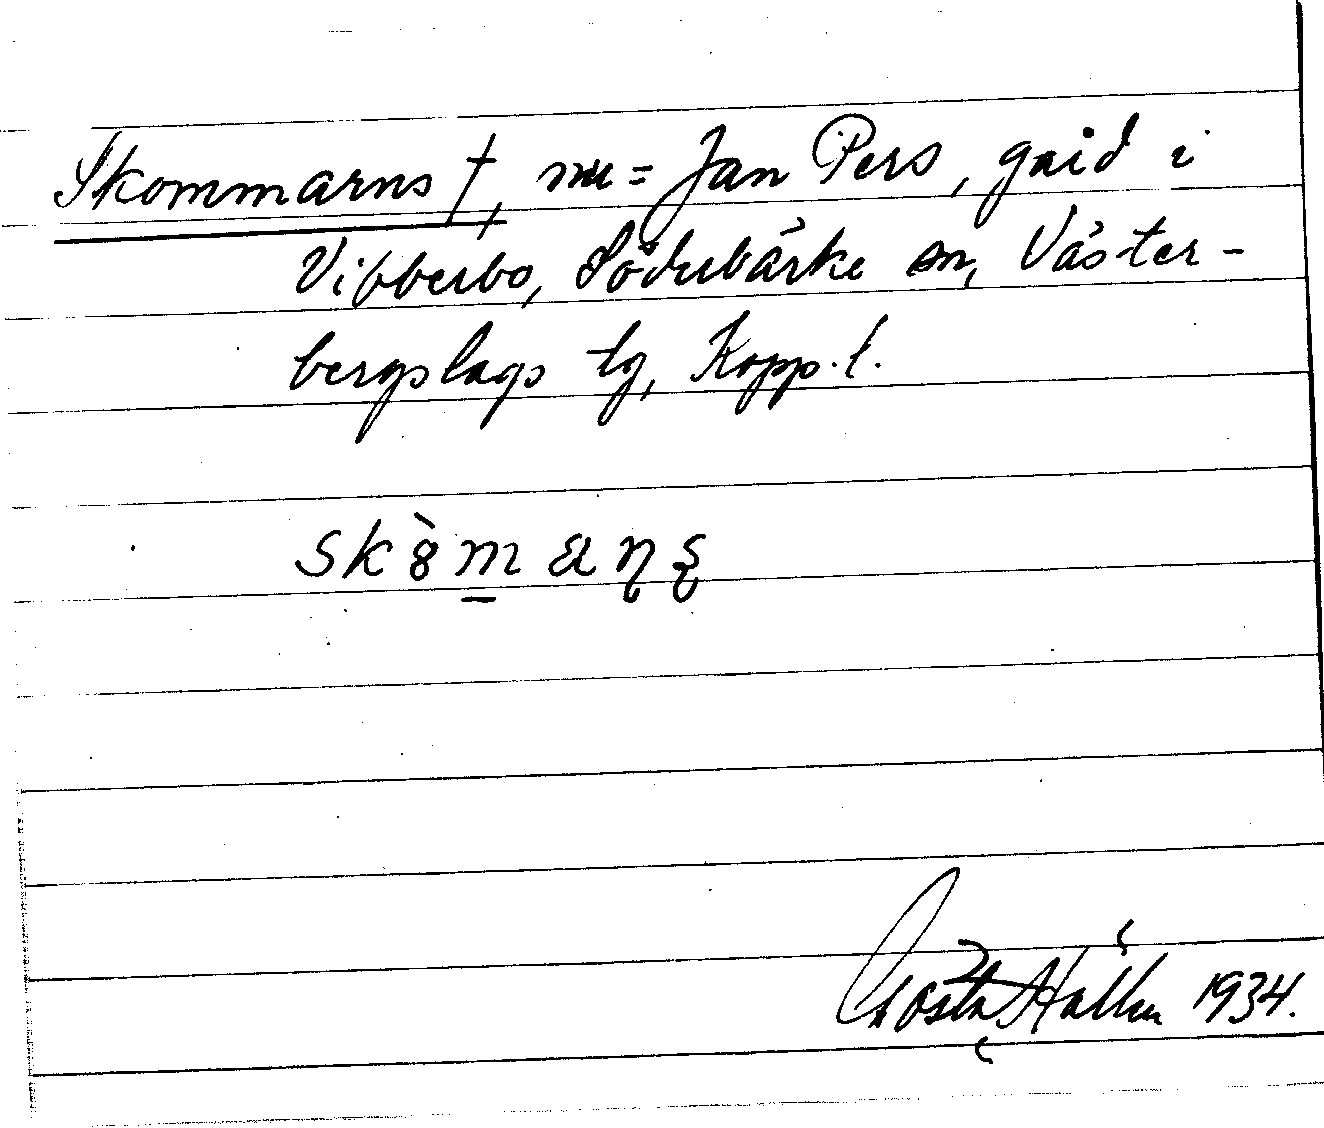 Skommarns †, nu = Jan Pers, gård i
Vibberbo, Söderbärke sn, Väster-
bergslags tg, Kopp. l.
Gösta 1934.